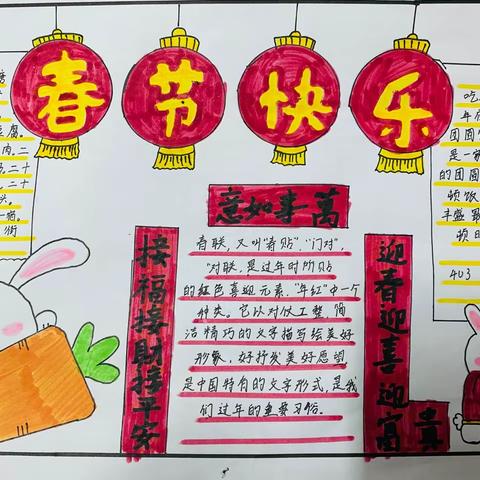 春节快乐
萬事如意
迎春迎喜迎富貴
接福接財接平安
春联，又叫"春贴"、"门对"、
"对联，是过年时所贴
的红色喜迎元素，"年红"中一个
种类。它以对仗工整、简
洁精巧的文字描写绘美好
形象，好抒发美好愿望
是中国特有的文字形式，是我
们过年的重要习俗。
腐。
肉，二
二十
二十
街
吃
年
团圆
是一
的团圆
顿饭
丰盛
顿
403